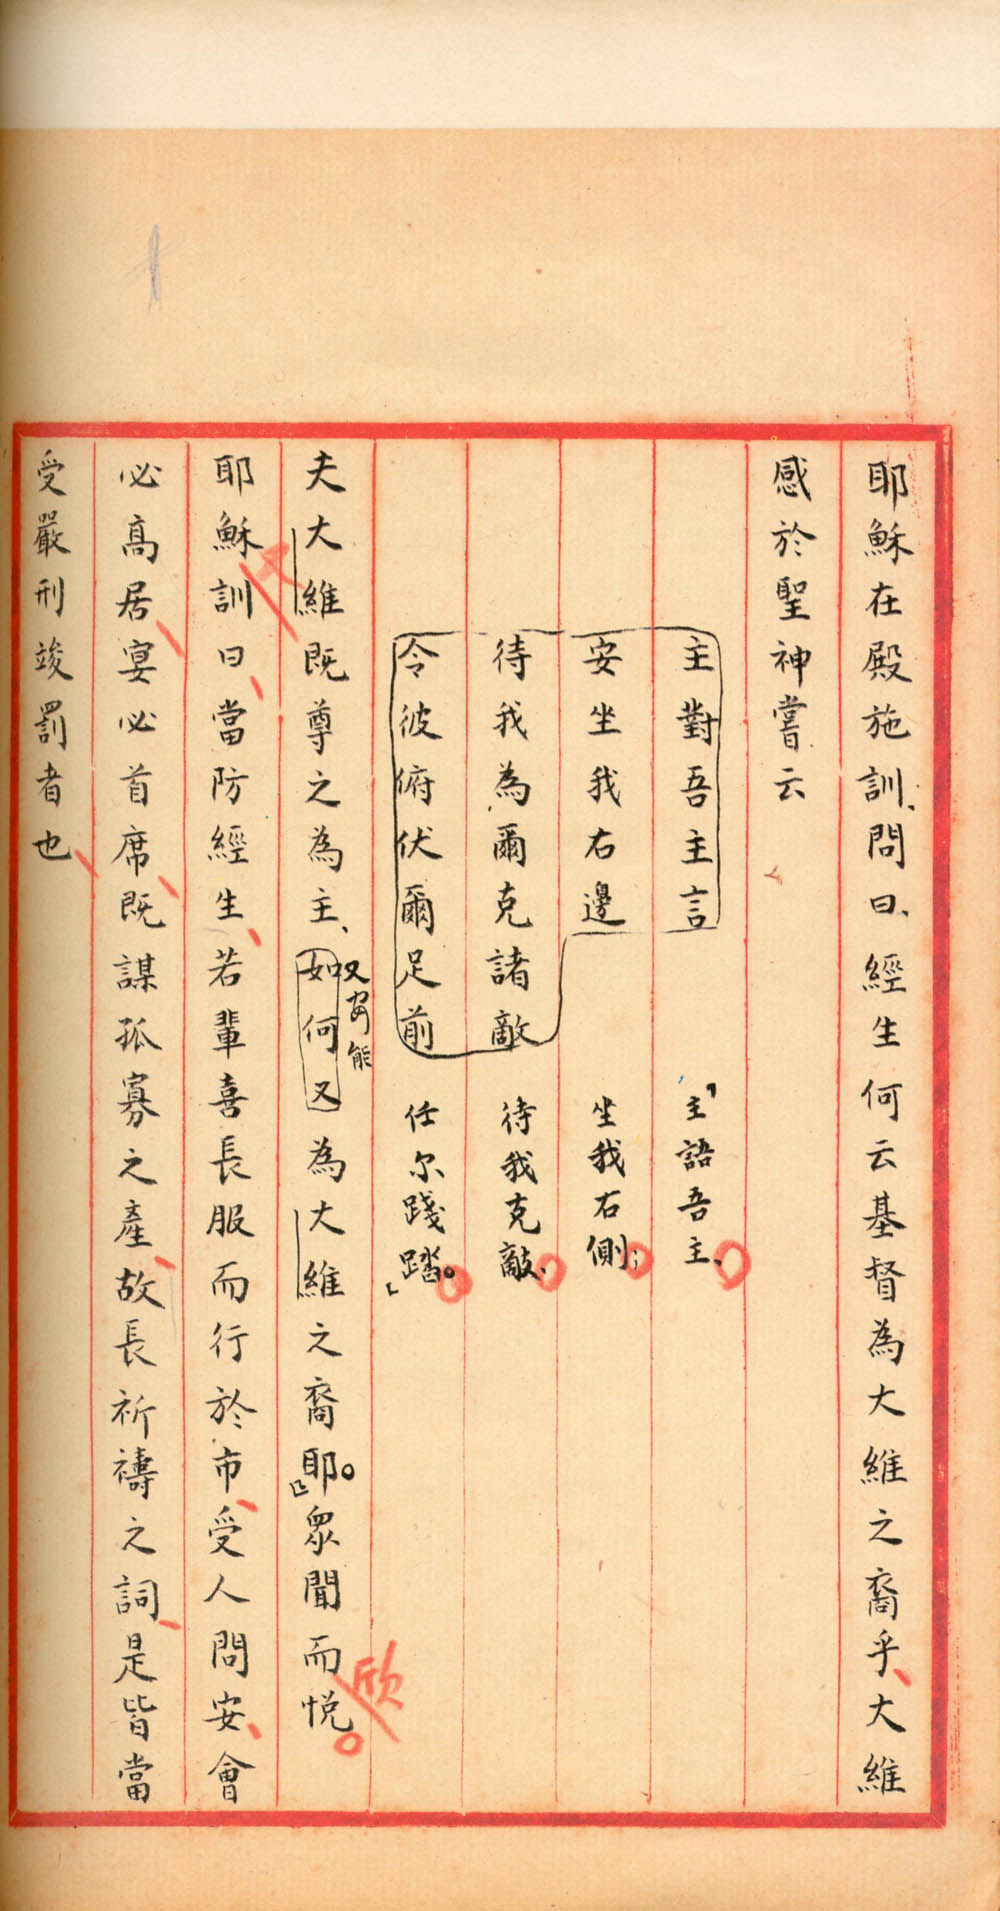 耶穌在殿施訓、問曰、經生何云基督為大維之裔乎、大維
感於聖神嘗云
主對吾主言 「主語吾主、
安坐我右邊 坐我右側；
待我為爾克諸敵 待我克敵、
令彼俯伏爾足前 任尔踐踏。」
夫大維既尊之為主、如何又為大維之裔耶。」眾聞而悅。
又安能
欣
耶穌訓曰、當防經生、若輩喜長服而行於市、受人問安、會
必高居、宴必首席、既謀孤寡之產、故長祈禱之詞、是皆當
受嚴刑竣罰者也、